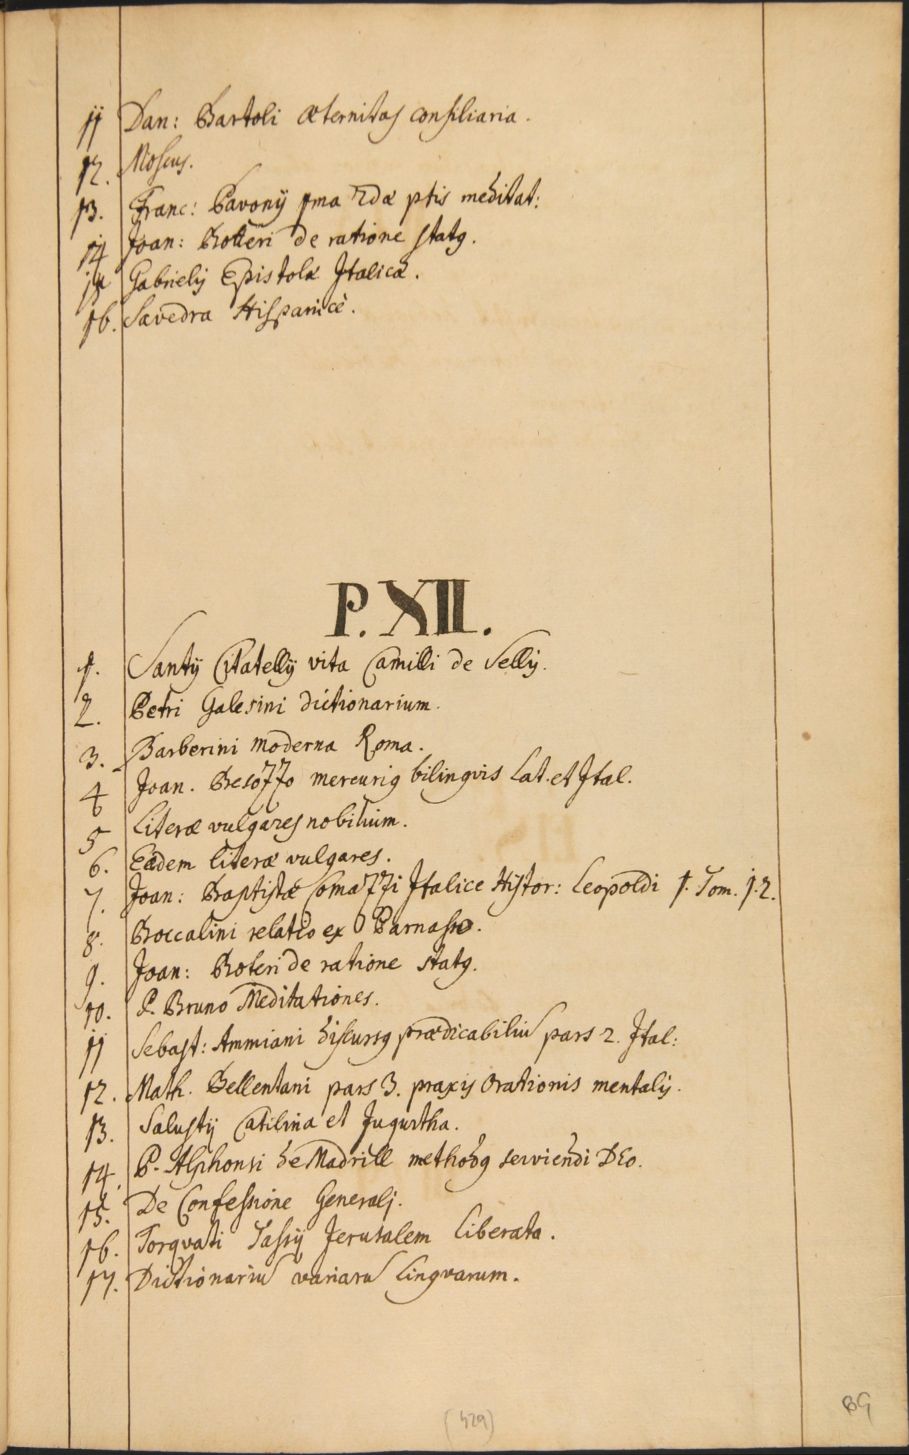 11 Dan: Bartoli æternitas consiliaria.
12. Moscus.
13. Franc: Pavonij 1ma 2dæ ptis meditat:
14 Joan: Botteri de ratione statq.
15 Gabrielij Epistolæ Italicæ.
16. Savedra Hispanicè.
P. XII.
1. Santij Citatellij vita Camilli de Lellij.
2. Petri Galesini dictionarium.
3. Barberini moderna Roma.
4 Joan. Besozzo mercuriq bilingvis Lat. et Ital.
5 Literæ vulgares nobilium.
6. Eædem literæ vulgares.
7. Joan: Baptistæ Comazzi Italice Histor: Leopoldi 1. Tom. 1. 2.
8. Boccalini relatio ex Parnasso.
9. Joan: Boteri de ratione statq.
10. P. Bruno Meditationes.
11 Sebast: Ammiani discursq prædicabiliu pars 2. Ital:
12. Math. Bellentani pars 3. praxis Orationis mentalis.
13. Salustij Catilina et Jugurtha.
14. P. Alphonsi de Madrill methodq serviendi DEo.
15. De Confessione Generali.
16. Torqvati Tassij Jerusalem Liberata.
17. Dictionariu variaru Lingvarum.
(429)
89